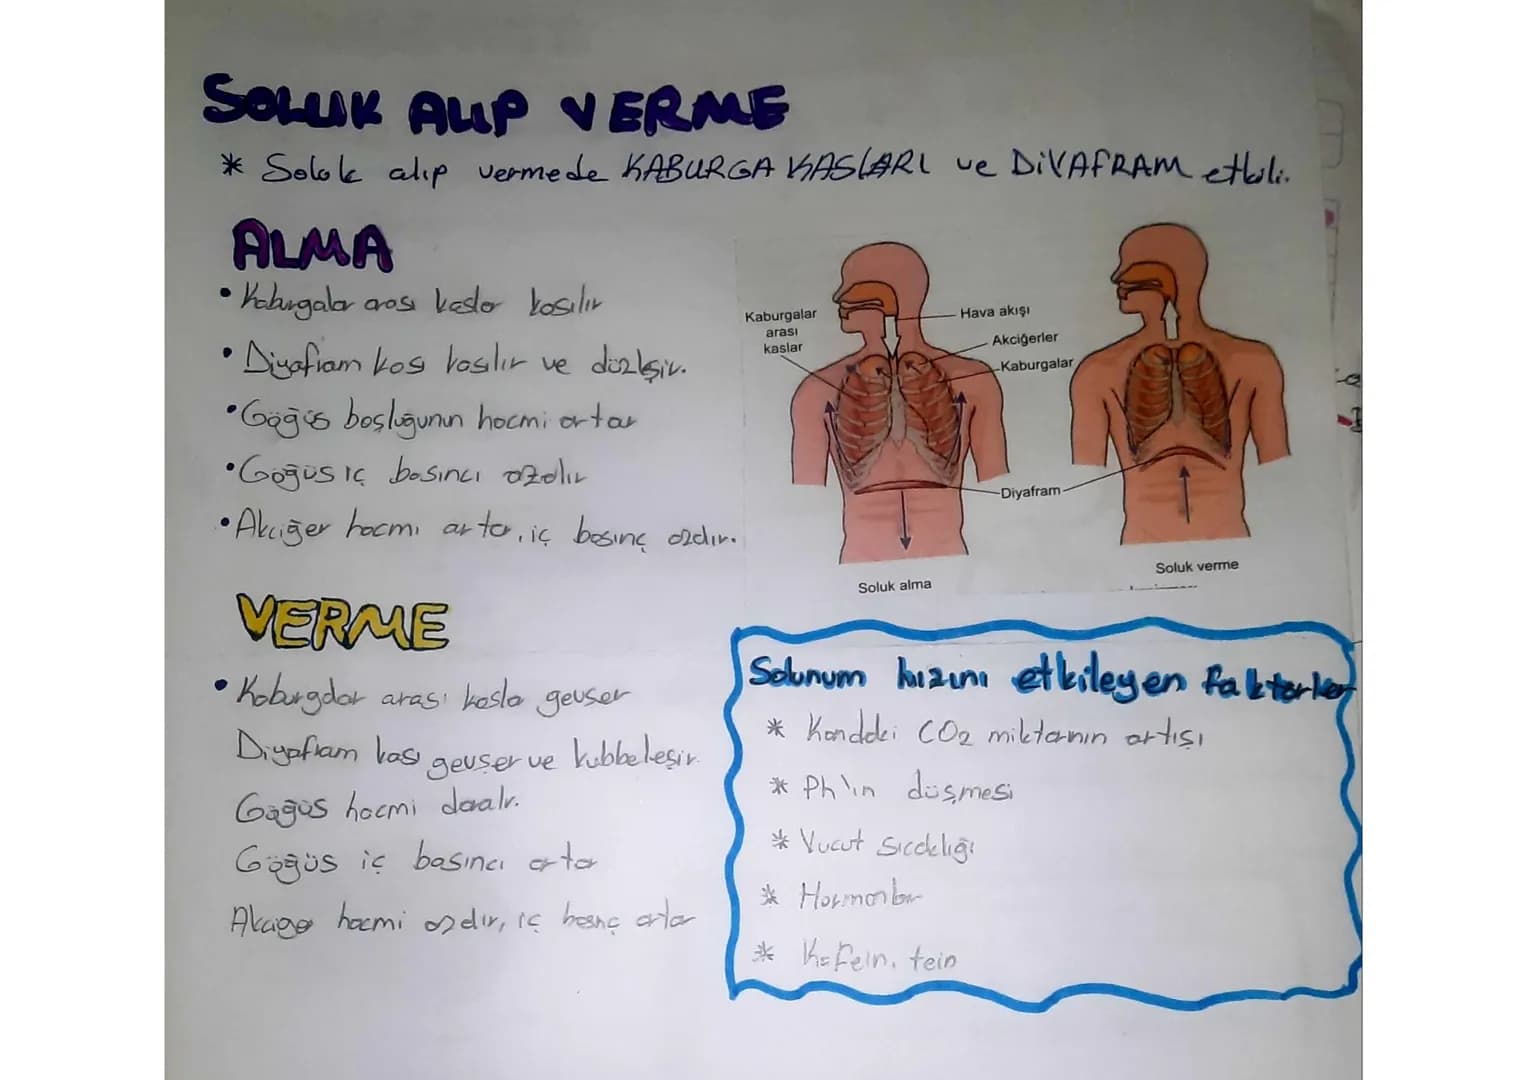 SOLUK ALIP VERME
* Soluk alıp vermede KABURGA KASLARI ve DİYAFRAM etkili.
ALMA
• Kaburgalar arası kaslar kasılır
• Diyafram kası kasılır ve düzleşir.
• Göğüs boşluğunun hacmi artar
• Göğüs iç basıncı azalır
• Akciğer hacmi artar, iç basınç azalır.
Kaburgalar
arası
kaslar
Hava akışı
Akciğerler
Kaburgalar
Diyafram
Soluk alma
Soluk verme
VERME
• Kaburgalar arası kasla gevşer
Diyafram kası gevşer ve kubbeleşir.
Göğüs hacmi daralır.
Göğüs iç basıncı artar
Akciğer hacmi azalır, iç basınç artar
Solunum hızını etkileyen faktörler
* Kandaki CO2 miktarının artışı
* Ph'ın düşmesi
* Vücut sıcaklığı
* Hormonlar
* Kafein, tein